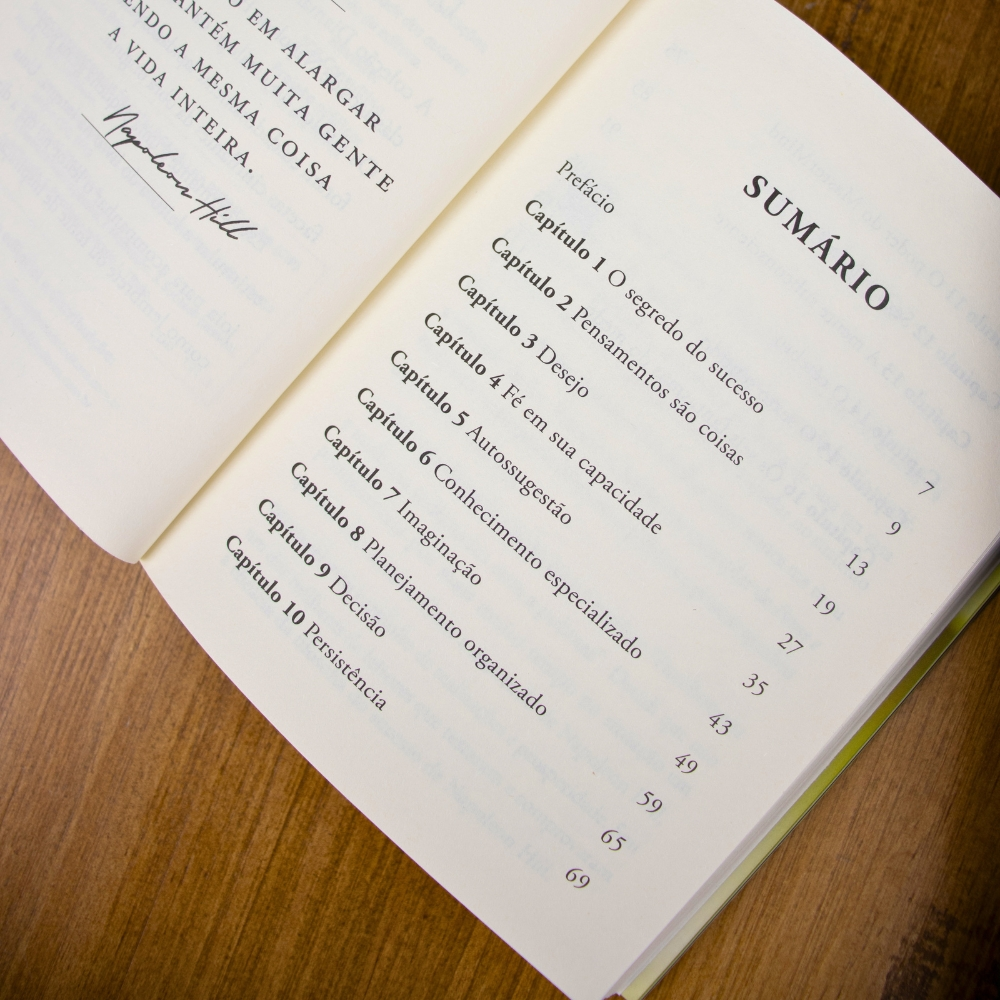 O EM ALARGAR
ANTÉM MUITA GENTE
ENDO A MESMA COISA
A VIDA INTEIRA.
Napoleon Hill
SUMÁRIO
Prefácio 7
Capítulo 1 O segredo do sucesso 9
Capítulo 2 Pensamentos são coisas 13
Capítulo 3 Desejo 19
Capítulo 4 Fé em sua capacidade 27
Capítulo 5 Autossugestão 35
Capítulo 6 Conhecimento especializado 43
Capítulo 7 Imaginação 49
Capítulo 8 Planejamento organizado 59
Capítulo 9 Decisão 65
Capítulo 10 Persistência 69